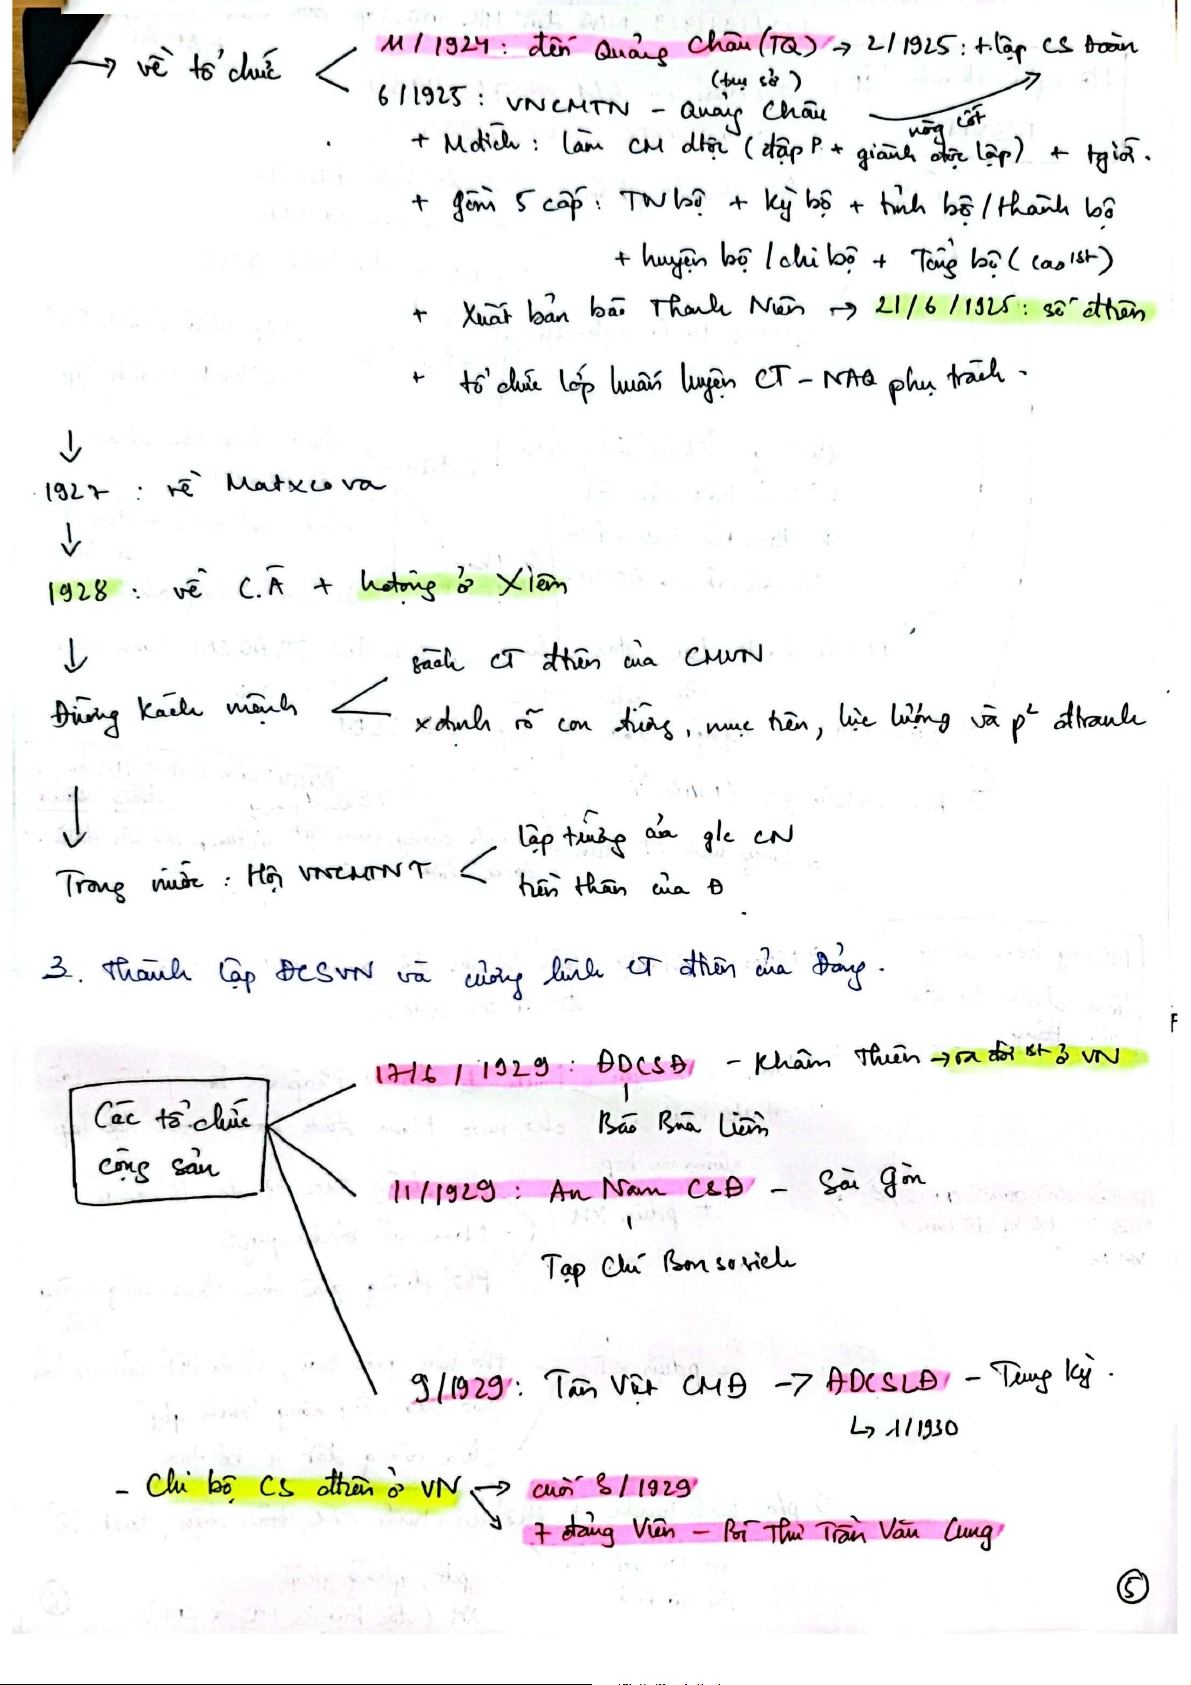 → về tổ chức
11/1924: đến Quảng Châu (TQ) → 2/1925: + lập CS Đoàn
(trụ sở)
6/1925: VNCMTN - Quảng Châu
nòng cốt
+ Mđích: làm CM dtộc (đập P + giành độc lập) + tgiới.
+ gồm 5 cấp: TW bộ + Kỳ bộ + tỉnh bộ / thành bộ
+ huyện bộ / chi bộ + Tổng bộ (cao 1st)
+ Xuất bản báo Thanh Niên → 21/6/1925: số đtiên
+ tổ chức lớp huấn luyện CT - NAQ phụ trách.
↓
1927: về Matxcova
↓
1928: về C.Â + hđộng ở Xiêm
↓
sách CT đtiên của CMVN
Đường Kách mệnh
xđịnh rõ con đường, mục tiên, lực lượng và p² đtranh
↓
lập trường của g/c CN
Trong nước: Hội VNCMTNT
tiền thân của Đ
3. Thành lập ĐCSVN và cương lĩnh CT đtiên của Đảng.
17/6/1929: ĐDCSĐ - Khâm Thiên → ra đời 1st ở VN
Báo Búa Liềm
Các tổ chức
cộng sản
11/1929: An Nam CSĐ - Sài Gòn
Tạp Chí Bonsovich
9/1929: Tân Việt CMĐ → ĐDCSLĐ - Trung Kỳ.
↳ 1/1930
- Chi bộ CS đtiên ở VN → cuối 3/1929
→ 7 đảng Viên - Bí Thư Trần Văn Cung
5